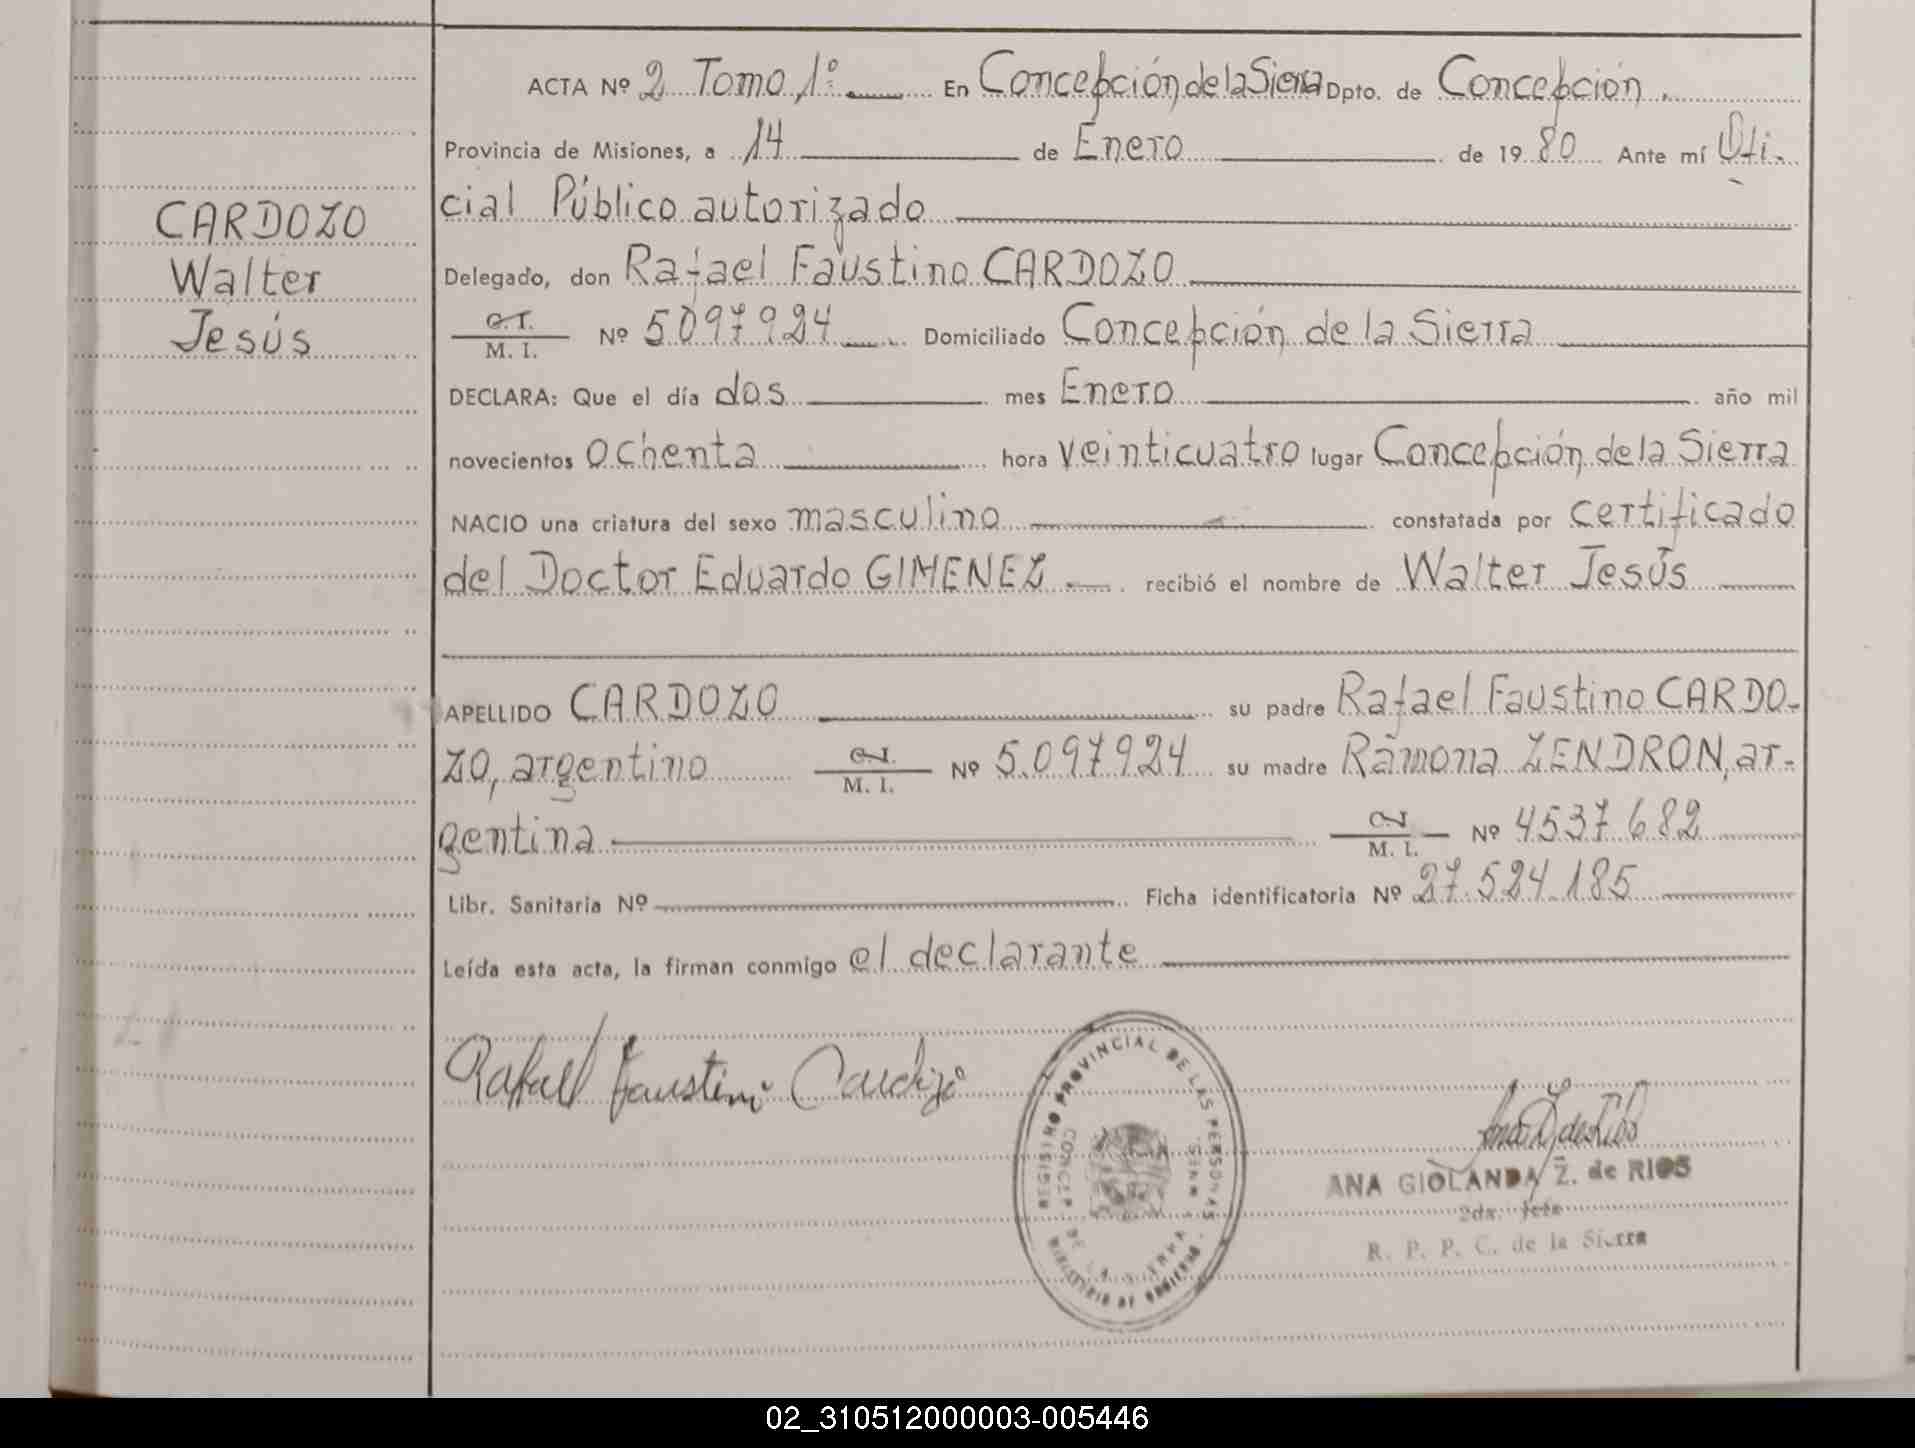 ACTA Nº 2 Tomo 1º. En Concepción de la Sierra Dpto. de Concepción.
Provincia de Misiones, a 14 de Enero de 1980 Ante mí Ofi-
cial Público autorizado
CARDOZO
Walter
Jesús
Delegado, don Rafael Faustino CARDOZO
C. I.
M. I. Nº 5.097.924 Domiciliado Concepción de la Sierra
DECLARA: Que el día dos mes Enero año mil
novecientos ochenta hora veinticuatro lugar Concepción de la Sierra
NACIO una criatura del sexo masculino constatada por certificado
del Doctor Eduardo GIMENEZ recibió el nombre de Walter Jesús
APELLIDO CARDOZO su padre Rafael Faustino CARDO-
ZO, argentino C. I. M. I. Nº 5.097.924 su madre Ramona ZENDRON, ar-
gentina C. I. M. I. Nº 4.537.682
Libr. Sanitaria Nº Ficha identificatoria Nº 27.524.185
Leída esta acta, la firman conmigo el declarante
Rafael Faustino Cardozo
REGISTRO PROVINCIAL DE LAS PERSONAS
MINISTERIO DE GOBIERNO
ANA GIOLANDA Z. de RIOS
2da. Jefe
R. P. P. C. de la Sierra
02_310512000003-005446